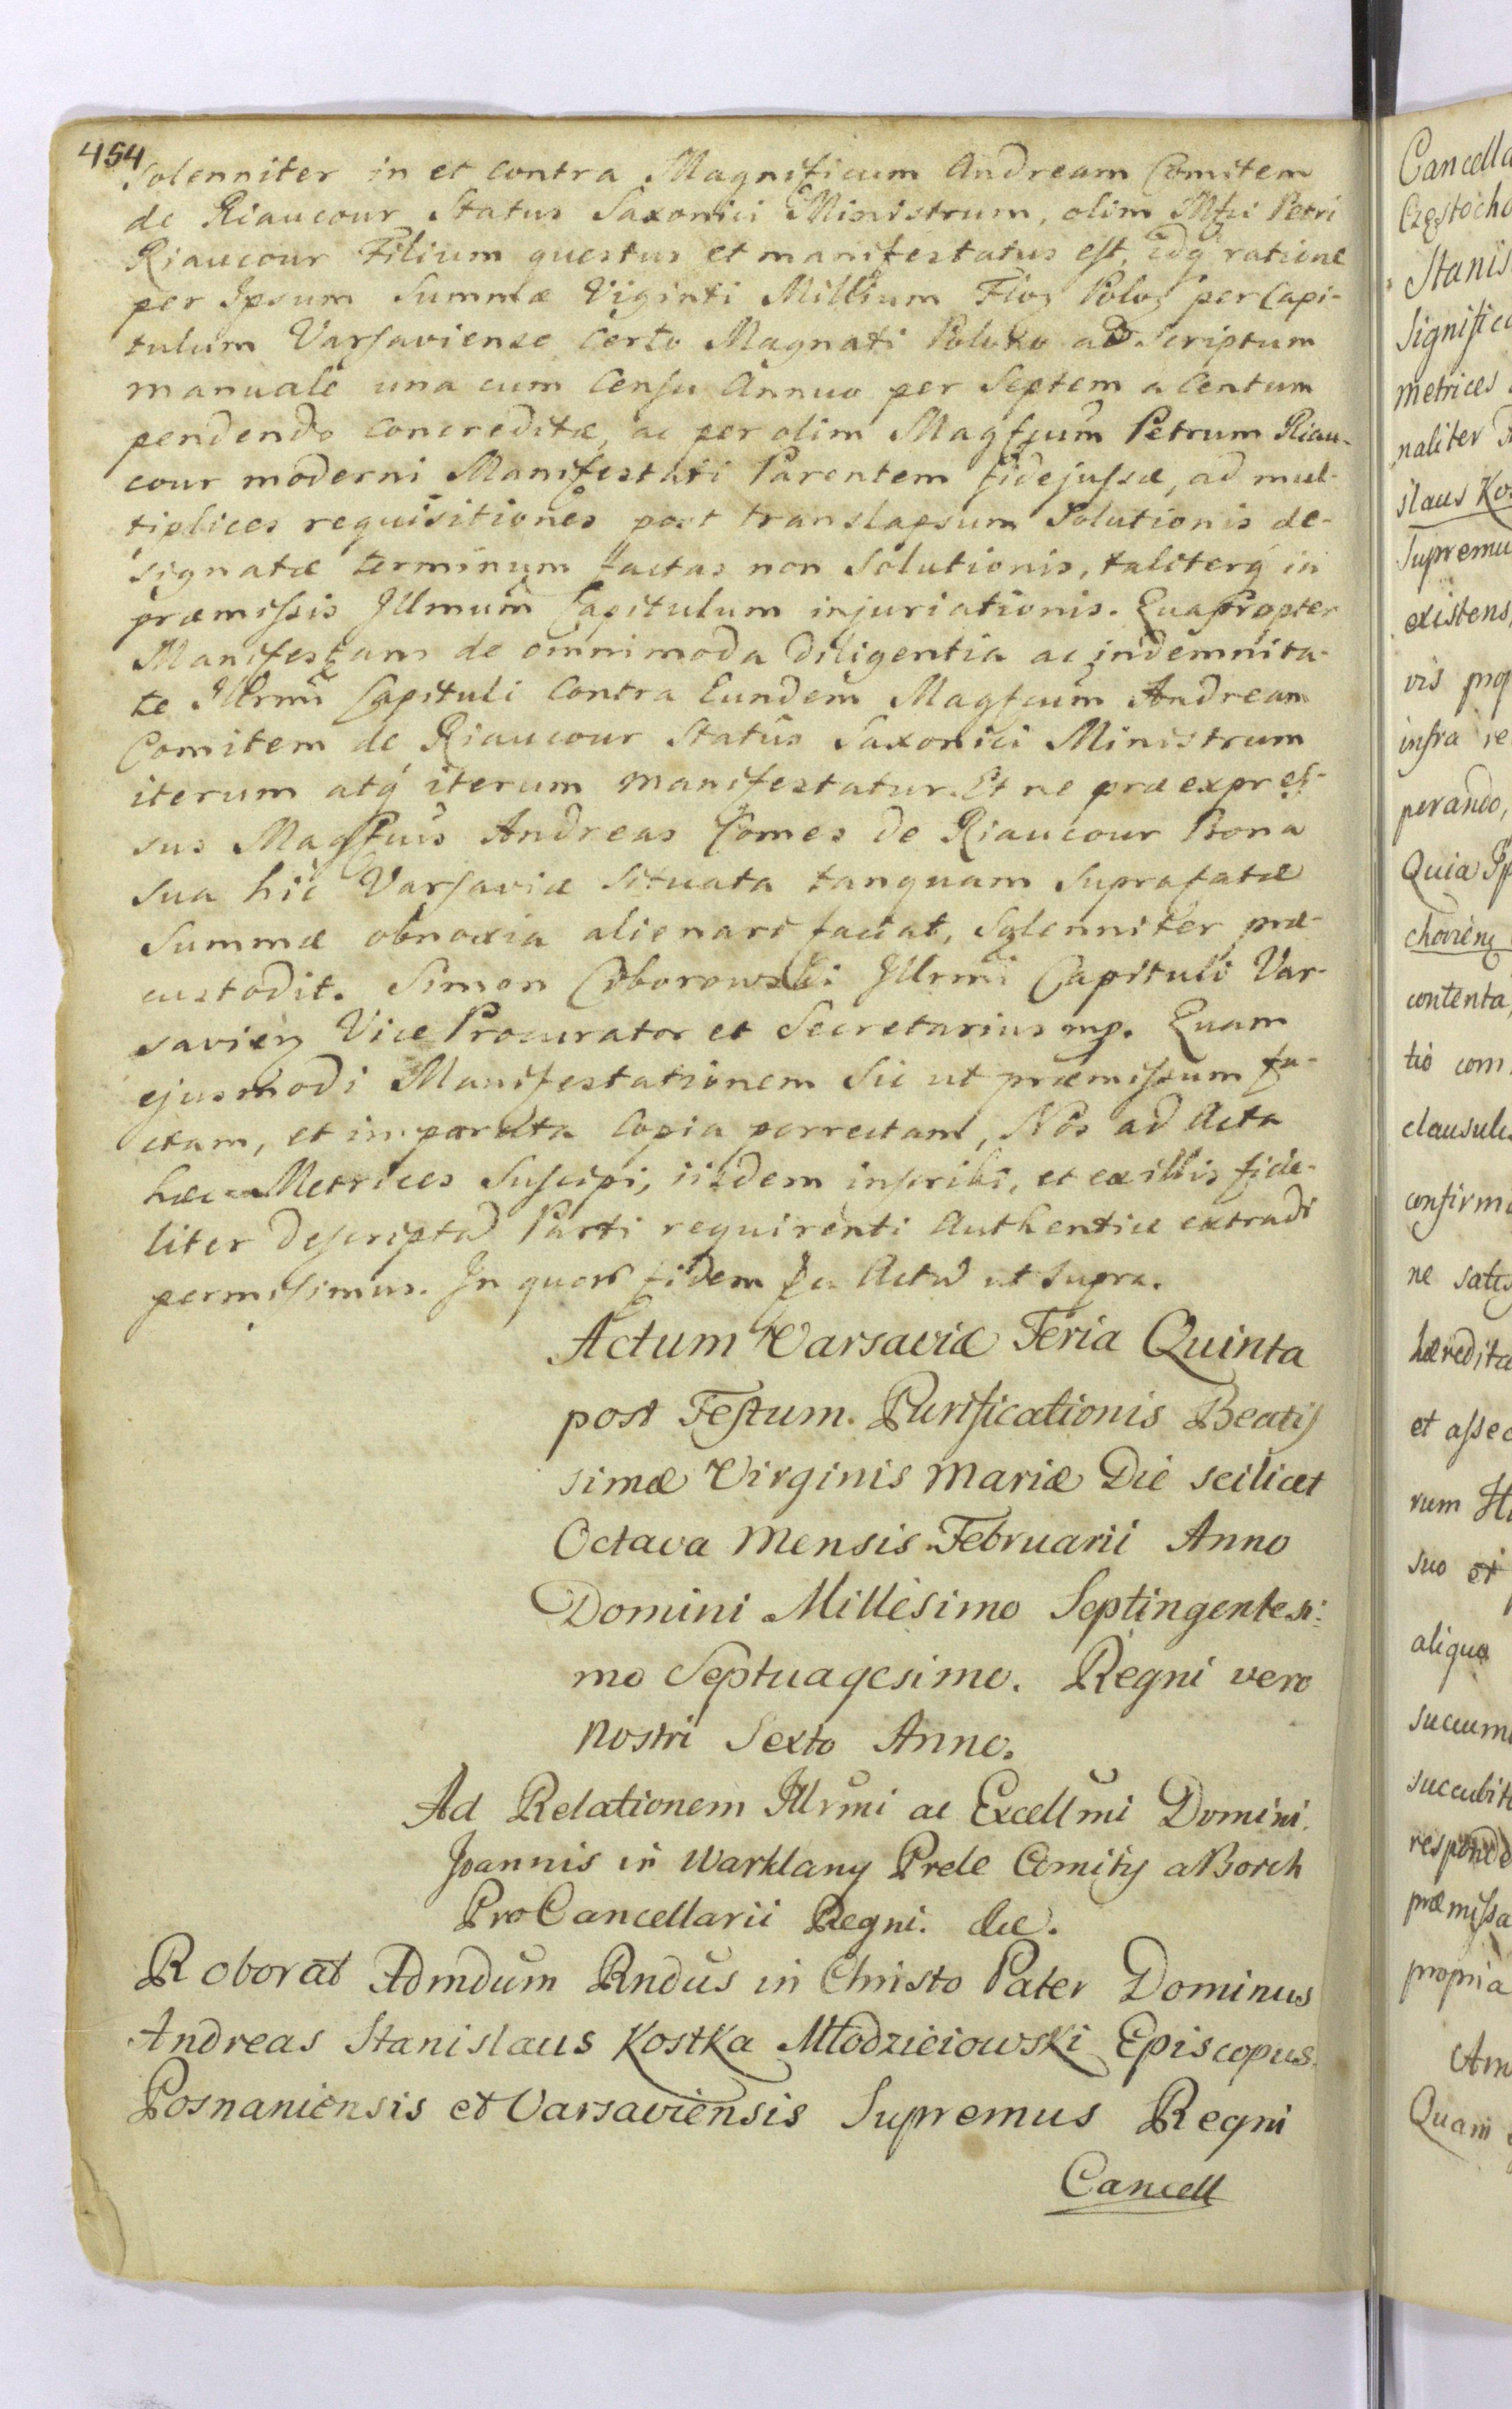 454
Solenniter in et contra Magnificum Andream Comitem
de Riaucour Status Saxonici Ministrum, olim Mfci Petri
Riaucour Filium questus et manifestatus est, idq ratione
per Ipsum Summæ Viginti Millium Floz Poloz per Capi-
tulum Varsaviense Certo Magnati Polono ad Scriptum
manuale una cum Censu Annuo per Septem a Centum
pendendo Concreditæ, ac per olim Magfcum Petrum Riau-
cour moderni Manifestati Parentem fidejussæ, ad mul-
tiplices requisitiones post translapsum Solutionis de-
signatæ terminum factas non Solutionis, taliterq in
præmissis Illmum Capitulum injuriationis. Quapropter
Manifestans de omnimoda Diligentia ac indemnita-
te Illrmi Capituli Contra Eundem Magfcum Andream
Comitem de Riaucour Status Saxonici Ministrum
iterum atq iterum manifestatur. Et ne præexpres-
sus Magfcus Andreas Comes de Riaucour Bona
sua hic Varsaviæ Situata tanquam Suprafatæ
Summæ obnoxia alienari faciat, Solenniter præ-
custodit. Simon Ciborowski Illrmi Capituli Var-
savien Vice Procurator et Secretarius mp. Quam
ejusmodi Manifestationem Sic ut præmissum fa-
ctam, et in parata Copia porrectam, Nos ad Acta
hæc Metrices Suscipi, iisdem inscribi, et ex illis fide-
liter descriptam Parti requirenti Authentice extradi
permisimus. In quor fidem Actum ut supra.
Actum Varsaviæ Feria Quinta
post Festum Purificationis Beatis
simæ Virginis Mariæ Die scilicet
Octava Mensis Februarii Anno
Domini Millesimo Septingentesi:
mo Septuagesimo. Regni vero
nostri Sexto Anno.
Ad Relationem Illrmi ac Excellmi Domini
Joannis in Warklany Prele Comitis a Borch
Pro Cancellarii Regni. &c.
Roborat Admdum Rndus in Christo Pater Dominus
Andreas Stanislaus Kostka Młodzieiowski Episcopus
Posnaniensis et Varsaviensis Supremus Regni
Cancell
Cancella
Częstocho
Stanis
Signific
metrices
naliter
slaus Kos
Supremu
existens,
vis prop
infra re
perando,
Quia Ip
contenta,
tio com
clausulis
confirma
ne satis
hæredita
et assec
rum
suo et
aliqua
succum
succubit
responde
præmissa
propria
Quam